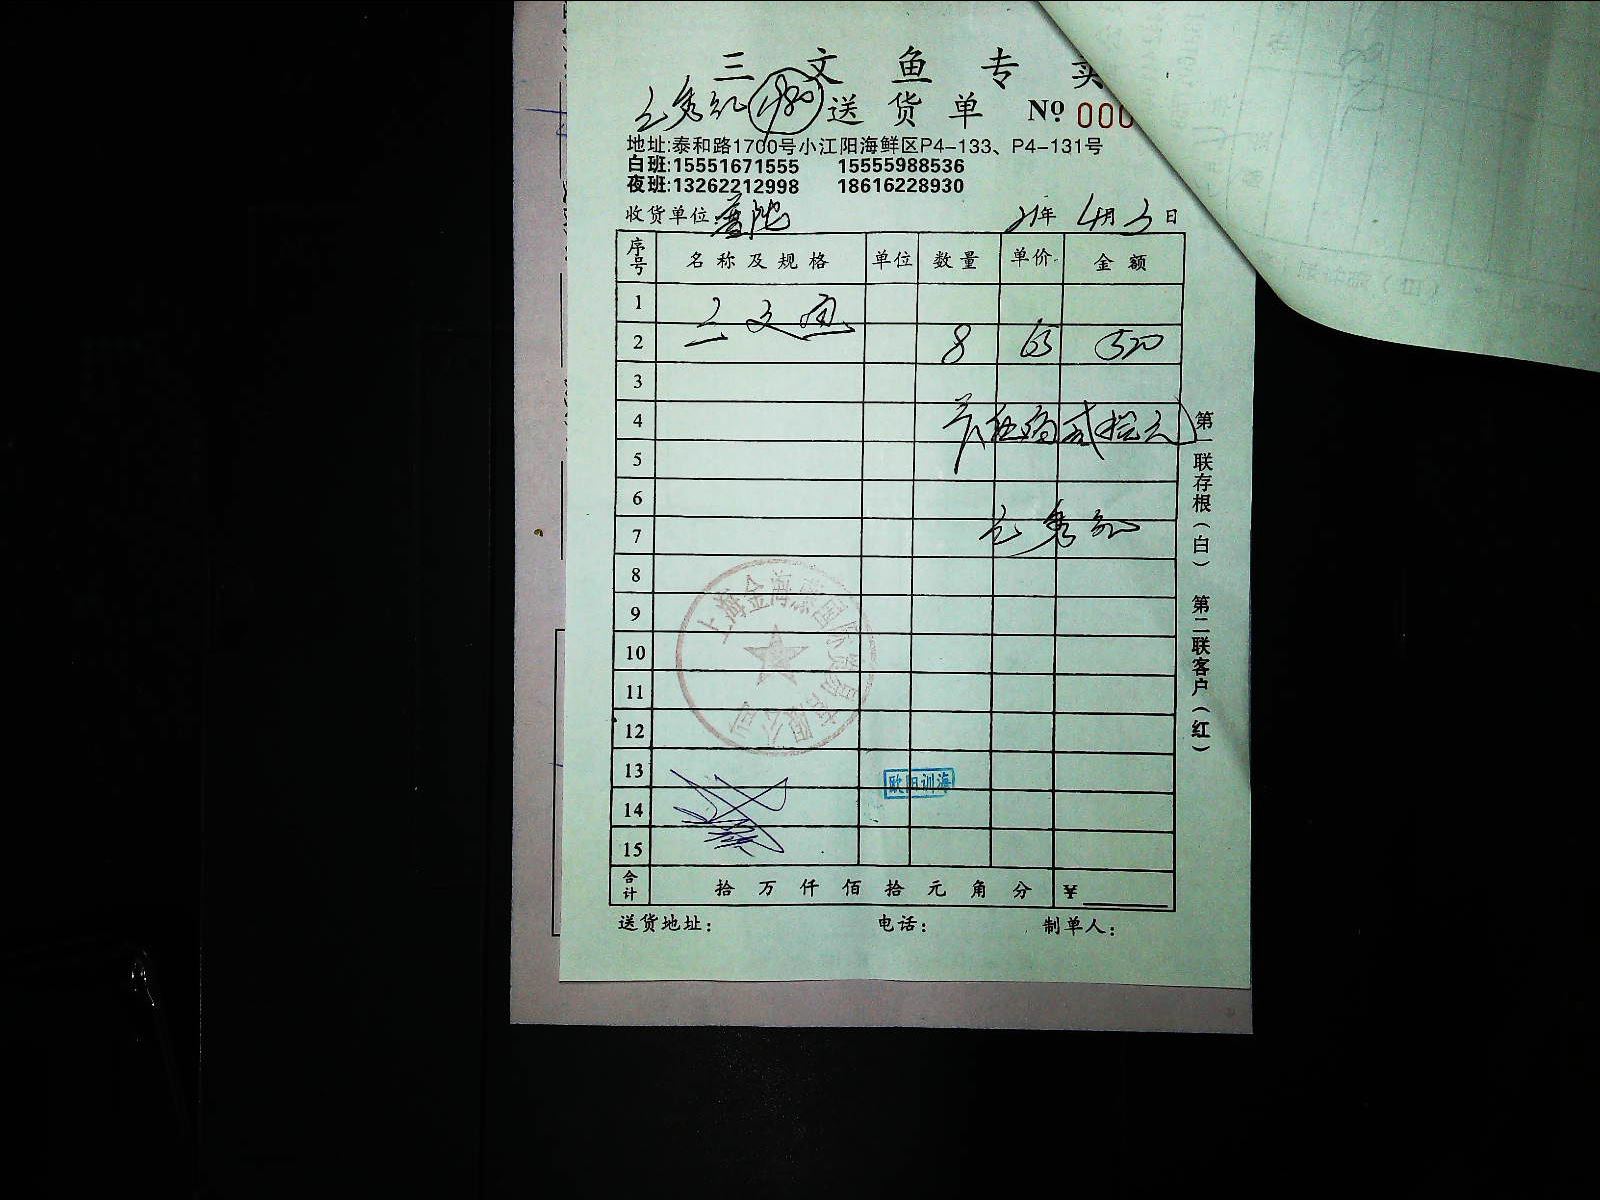 三文鱼专卖
送货单 № 000
地址:泰和路1700号小江阳海鲜区P4-133、P4-131号
白班:15551671555 15555988536
夜班:13262212998 18616228930
收货单位:普陀 21年 4月 3日
序号 名称及规格 单位 数量 单价 金额
1 三文鱼
2 8 65 520
3
4
5
6
7
8
9
10
11
12
13
14
15
上海金海 国际贸易有限公司
欧阳训海
合计 拾 万 仟 佰 拾 元 角 分 ¥
送货地址: 电话: 制单人:
第一联存根(白) 第二联客户(红)